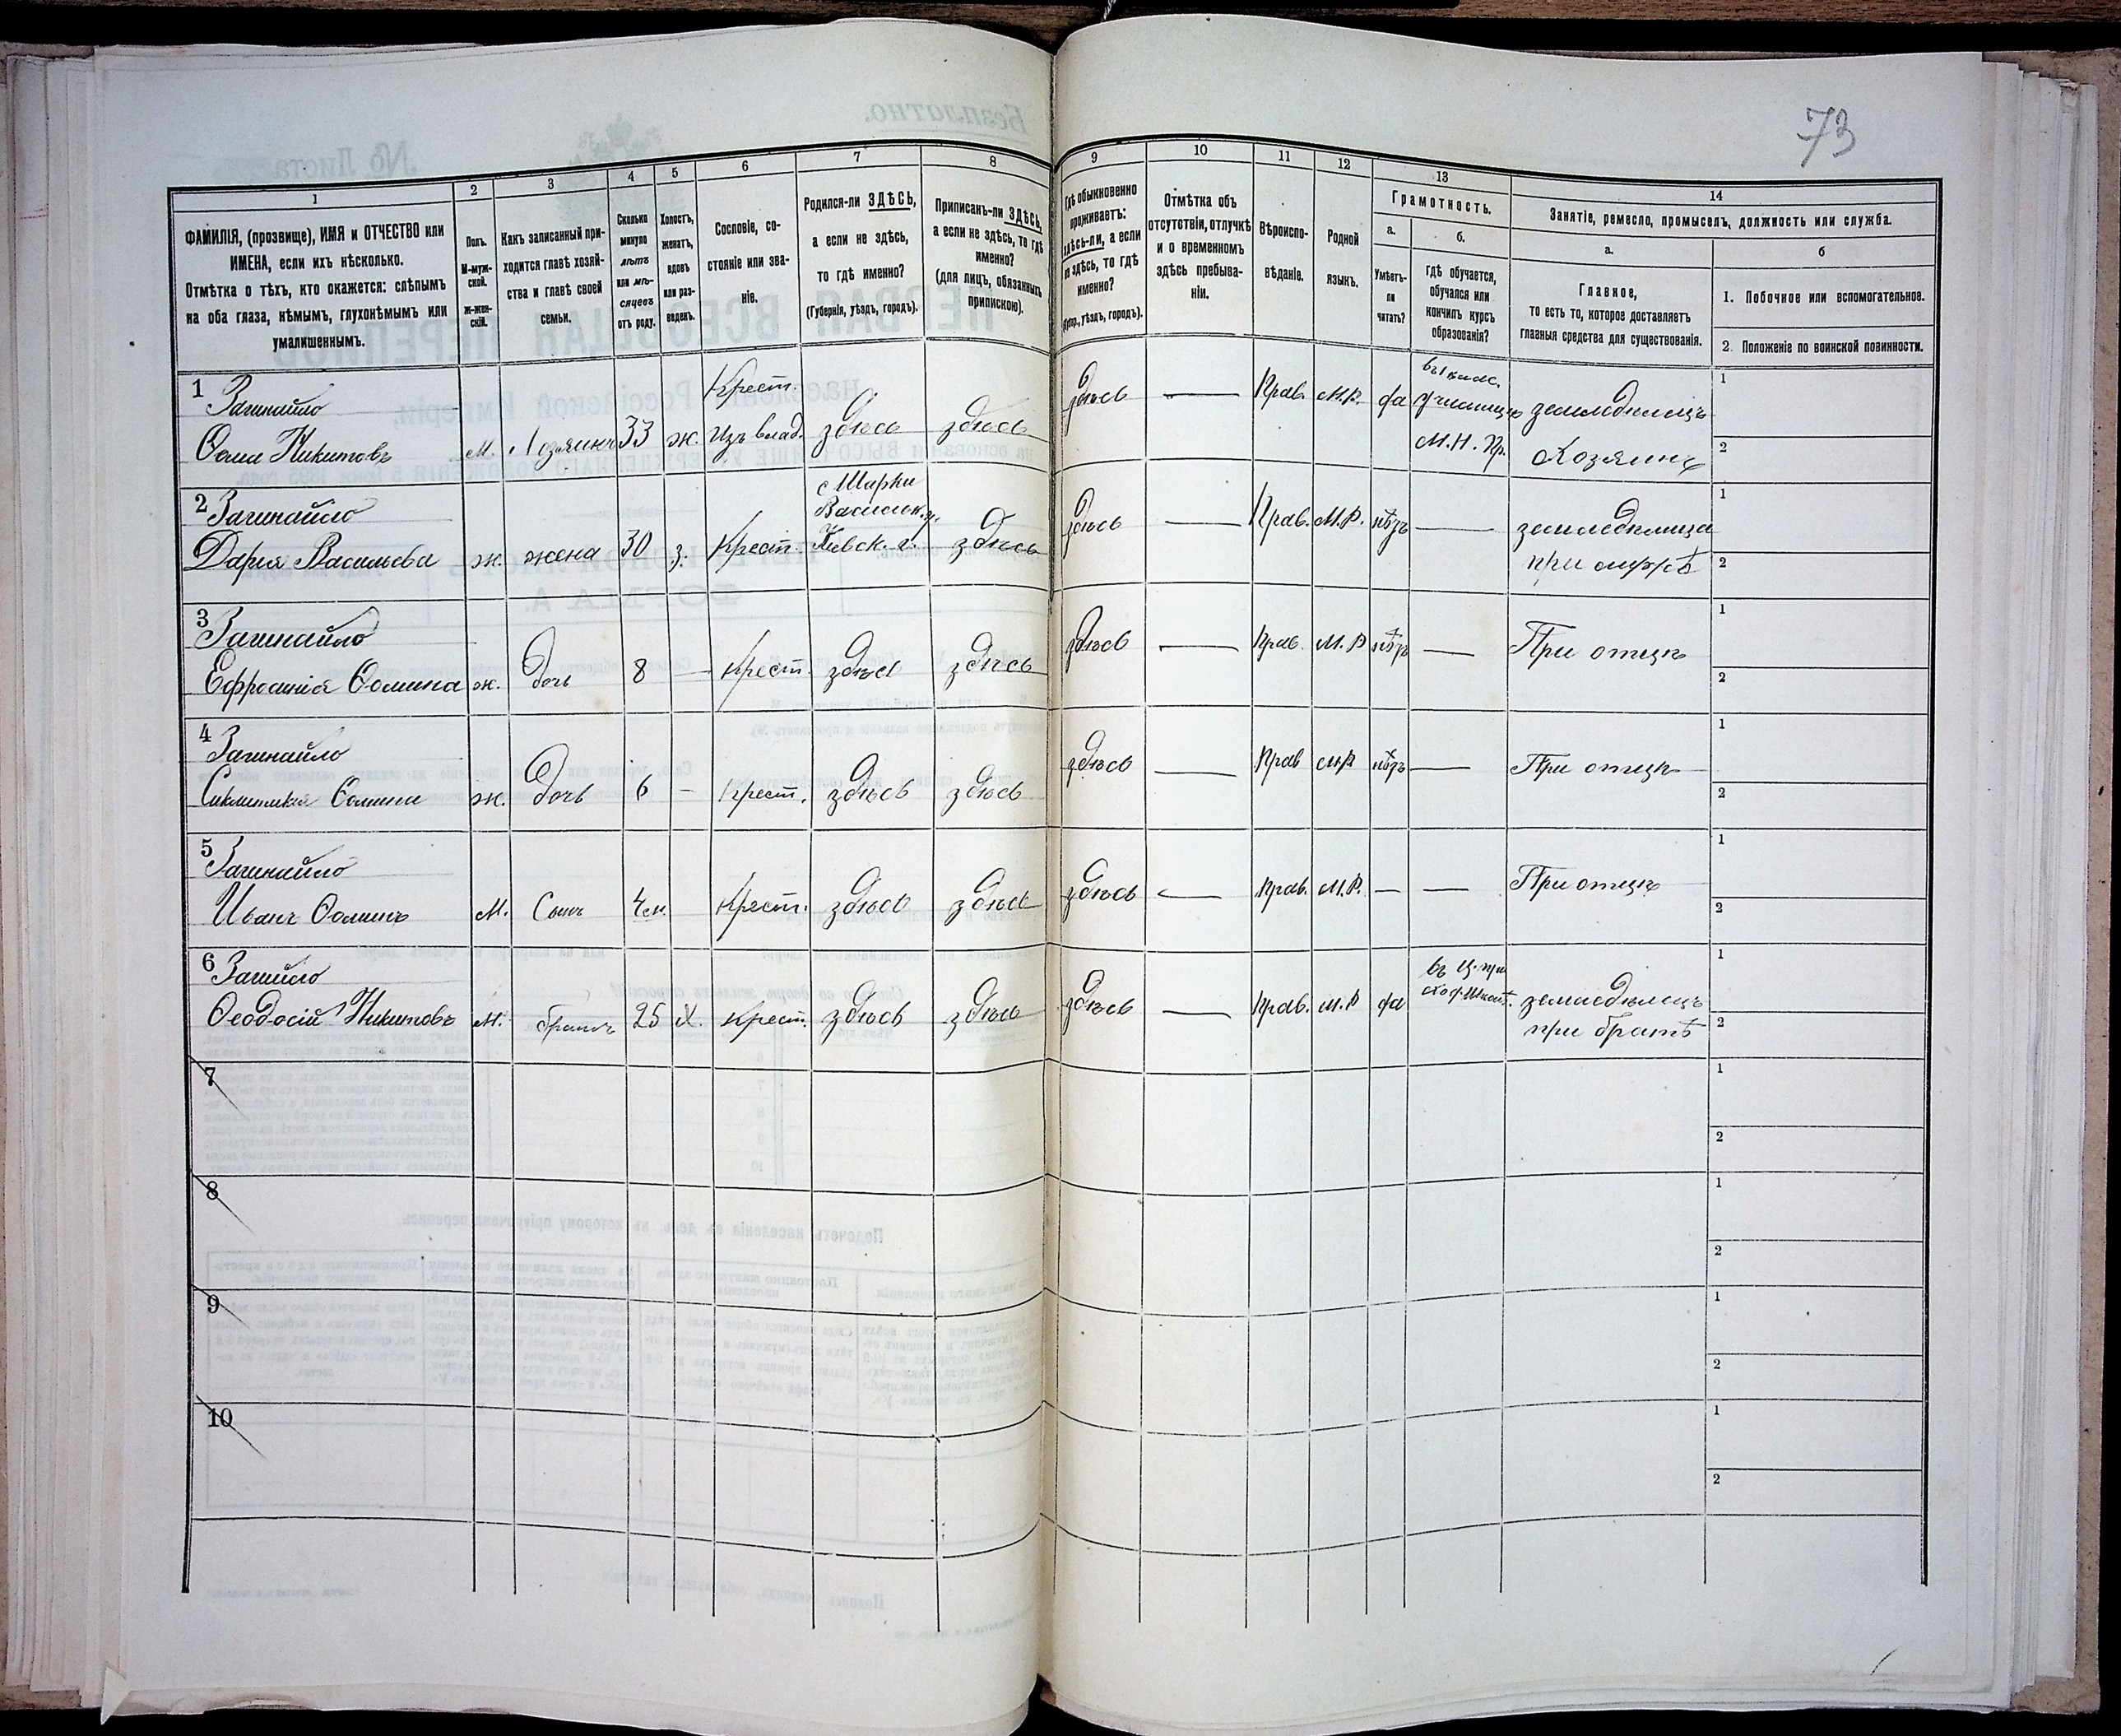 73
1
ФАМИЛІЯ, (прозвище), ИМЯ и ОТЧЕСТВО или
ИМЕНА, если ихъ нѣсколько.
Отмѣтка о тѣхъ, кто окажется: слѣпымъ
на оба глаза, нѣмымъ, глухонѣмымъ или
умалишеннымъ.
2
Полъ.
М-муж-
ской.
ж-жен-
скій.
3
Какъ записанный при-
ходится главѣ хозяй-
ства и главѣ своей
семьи.
4
Сколько
минуло
лѣтъ
или мѣ-
сяцевъ
отъ роду.
5
Холостъ,
женатъ,
вдовъ
или раз-
веденъ.
6
Сословіе, со-
стояніе или зва-
ніе.
7
Родился-ли ЗДѢСЬ,
а если не здѣсь,
то гдѣ именно?
(Губернія, уѣздъ, городъ).
8
Приписанъ-ли ЗДѢСЬ,
а если не здѣсь, то гдѣ
именно?
(для лицъ, обязанныхъ
припискою).
9
Гдѣ обыкновенно
проживаетъ:
здѣсь-ли, а если
не здѣсь, то гдѣ
именно?
(Губер., уѣздъ, городъ).
10
Отмѣтка объ
отсутствіи, отлучкѣ
и о временномъ
здѣсь пребыва-
ніи.
11
Вѣроиспо-
вѣданіе.
12
Родной
языкъ.
13
Грамотность.
а.
Умѣетъ-
ли
читать?
б.
гдѣ обучается,
обучался или
кончилъ курсъ
образованія?
14
Занятіе, ремесло, промыселъ, должность или служба.
а.
Главное,
то есть то, которое доставляетъ
главныя средства для существованія.
б
1. Побочное или вспомогательное.
2. Положеніе по воинской повинности.
1 Загинайло
Ѳома Никитовъ
м. Хозяинъ 33 ж.
Крест.
изъ влад.
здѣсь здѣсь здѣсь — Прав. М.Р. да
училищѣ
М.Н.Пр.
земледѣлецъ
Хозяинъ
1
2
2 Загинайло
Дарія Васильева
ж. жена 30 з. Крест.
с Шарки
Васильк. у.
Кіевск. г.
здѣсь здѣсь — Прав. М.Р. нѣтъ —
земледѣлица
при мужѣ
1
2
3 Загинайло
Ефросинія Ѳомина
ж. дочь 8 — Крест. здѣсь здѣсь здѣсь — Прав. М.Р нѣтъ — При отцѣ
1
2
4 Загинайло
Синклитикія Ѳомина
ж. дочь 6 — Крест. здѣсь здѣсь здѣсь — Прав МР нѣтъ — При отцѣ
1
2
5 Загинайло
Иванъ Ѳоминъ
м. Сынъ 4 м. Крест. здѣсь здѣсь здѣсь — Прав. М.Р. — — При отцѣ
1
2
6
Ѳеодосій Никитовъ
м. братъ 25 х. Крест. здѣсь здѣсь здѣсь — Прав. М.Р да
въ Ц. при
земледѣлецъ
при братѣ
1
2
7
1
2
8
1
2
9
1
2
10
1
2